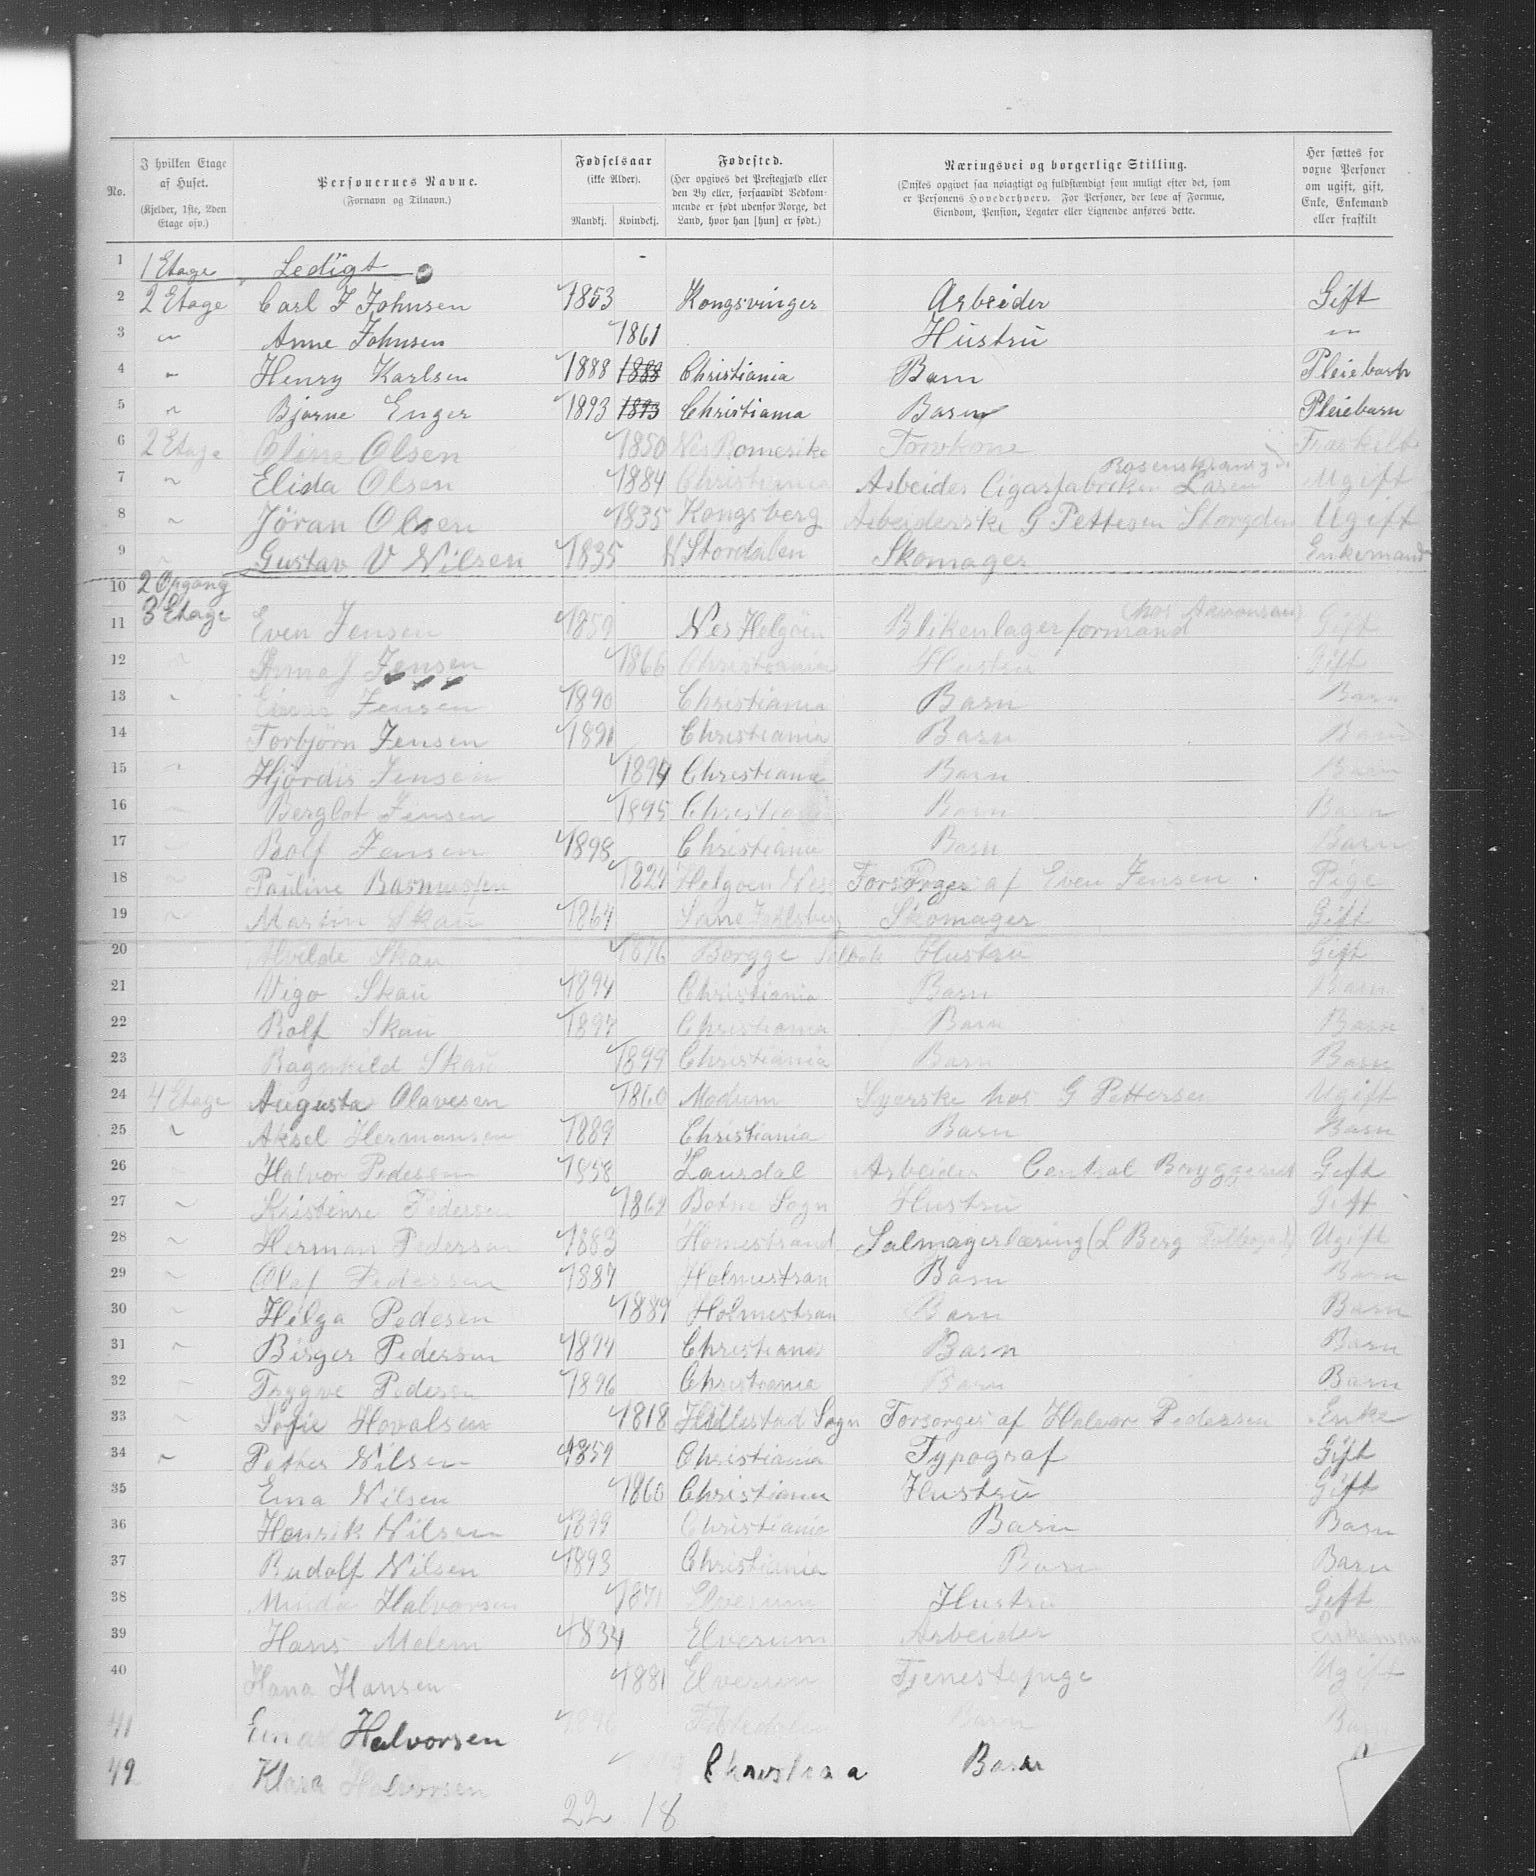 No.
I hvilken Etage af Huset. (Kjelder, 1ste, 2den Etage osv.)
Personernes Navne. (Fornavn og Tilnavn.)
Fødselsaar (ikke Alder). Mandkj. Kvindekj.
Fødested. (Her opgives det Prestegjæld eller den By eller, forsaavidt Vedkommende er født udenfor Norge, det Land, hvor han [hun] er født.)
Næringsvei og borgerlige Stilling. (Ønskes opgivet saa nøiagtigt og fuldstændigt som muligt efter det, som er Personens Hovederhverv. For Personer, der leve af Formue, Eiendom, Pension, Legater eller Lignende anføres dette.
Her sættes for voxne Personer om ugift, gift, Enke, Enkemand eller fraskilt
1 1 Etage Ledigt
2 2 Etage Carl J Johnsen 1853 Kongsvinger Arbeider Gift
3 " Anne Johnsen 1861 Hustru "
4 " Henry Karlsen 1888 1888 Christiania Barn Pleiebarn
5 " Bjarne Enger 1893 1893 Christiania Barn Pleiebarn
6 2 Etage Oline Olsen 1850 Nes Romerike Torvkone Fraskilt
7 " Elida Olsen 1884 Christiania Arbeider Cigarfabriken Larsen Ugift
8 " Jöran Olsen 1835 Kongsberg Arbeiderske G Pettesen Storgden Ugift
9 " Gustav V Nilsen 1835 N Stordalen Skomager Enkemand
10 2 Opgang
11 3 Etage Even Jensen 1859 Nes Helgöen Blikenlagerformand Gift
12 " Anna J Jensen 1866 Christiania Hustru Gift
13 " Einar Jensen 1890 Christiania Barn Barn
14 Torbjörn Jensen 1891 Christiania Barn Barn
15 " Hjördis Jensen 1894 Christiania Barn Barn
16 " Berglot Jensen 1895 Christiania Barn Barn
17 " Rolf Jensen 1898 Christiania Barn Barn
18 " Pauline Rasmussen 1824 Helgöen Nes Forsörges af Even Jensen Pige
19 " Martin Skau 1864 Skomager Gift
20 Alvilde Skau 1876 Borgge Hustru Gift
21 Vigo Skau 1894 Christiania Barn Barn
22 Rolf Skau 1897 Christiania Barn Barn
23 Ragnhild Skau 1899 Christiania Barn Barn
24 4 Etage Augusta Olavesen 1860 Modum Syerske hos G Pettersen Ugift
25 " Aksel Hermansen 1889 Christiania Barn Barn
26 Halvor Pedersen 1858 Laurdal Arbeider Central Bryggeriet Gift
27 " Kristinne Pedersen 1869 Botne Sogn Hustru Gift
28 " Herman Pedersen 1883 Homestrand Salmagerlæring (L Berg Ugift
29 " Olaf Pedersen 1887 Holmestran Barn Barn
30 " Helga Pedesen 1889 Holmestran Barn Barn
31 " Birger Pedersen 1894 Christiana Barn Barn
32 " Trygve Pedersen 1896 Christiania Barn Barn
33 " Sofie Hovalsen 1818 Hillestad Sogn Forsorges af Halvor Pedersen Enke
34 " Petter Nilsen 1859 Christiania Typograf Gift
35 Ema Nilsen 1860 Christiania Hustru Gift
36 Henrik Nilsen 1899 Christiania Barn Barn
37 Rudolf Nilsen 1893 Christiania Barn Barn
38 Minda Halvorsen 1871 Elverum Hustru Gift
39 Hans Melem 1834 Elverum Arbeider Enkeman
40 Hana Hansen 1881 Elverum Tjenestepige Ugift
41 Einar Halvorsen 1896 Barn Barn
42 Klara Halvorsen Christiaa Barn
22 18